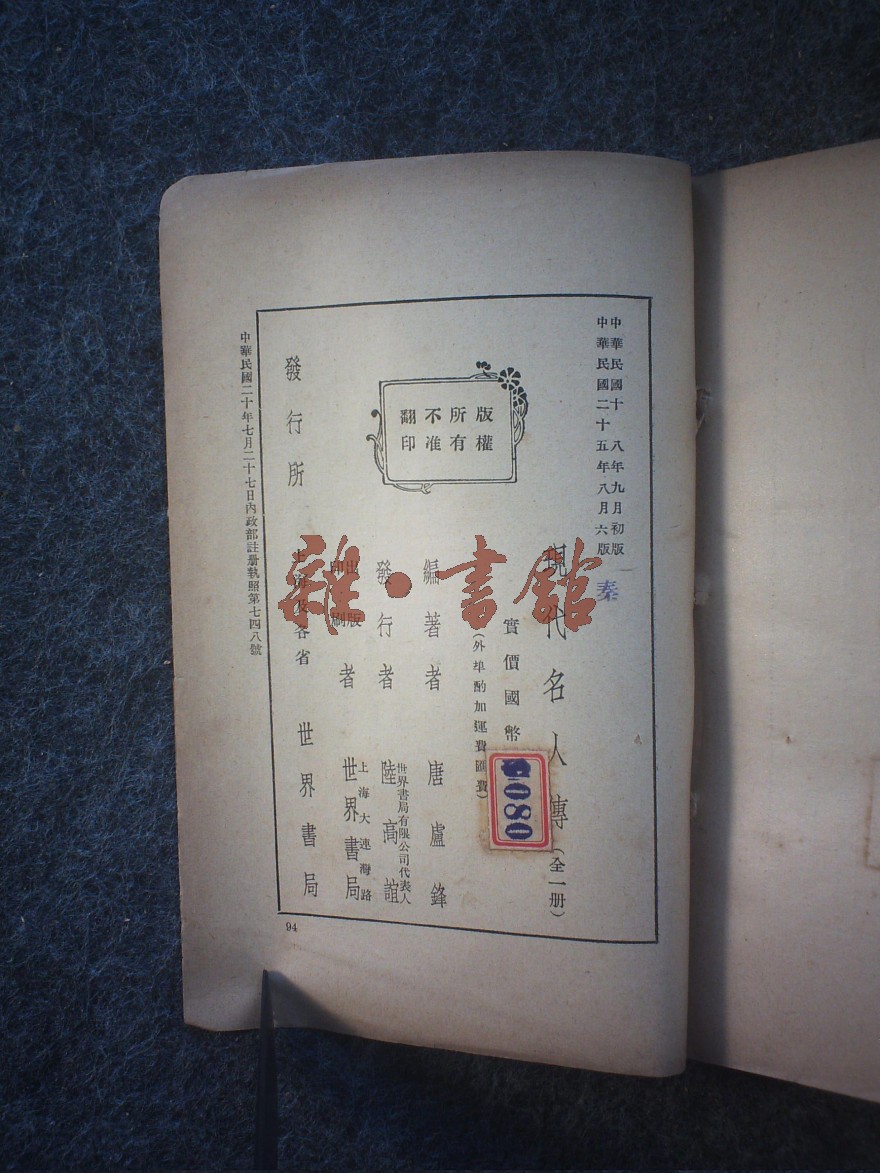 中華民國十八年九月初版
中華民國二十五年八月六版
秦
現代名人傳（全一册）
實價國幣
080
（外埠酌加運費匯費）
版權
所有
不准
翻印
編著者 唐盧鋒
發行者 世界書局有限公司代表人 陸高誼
出版印刷者 上海大連灣路 世界書局
發行所 上海及各省 世界書局
中華民國二十年七月二十七日內政部註册執照第七四八號
94
雜·書館